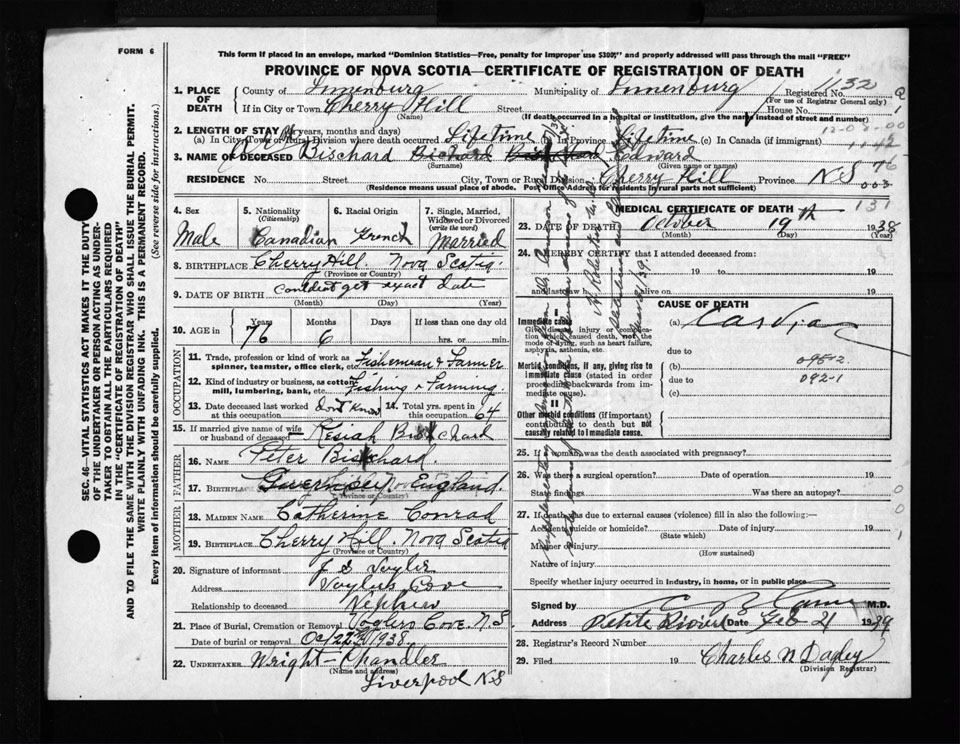 FORM 6
This form if placed in an envelope, marked "Dominion Statistics—Free, penalty for improper use $300," and properly addressed will pass through the mail "FREE"
PROVINCE OF NOVA SCOTIA—CERTIFICATE OF REGISTRATION OF DEATH
SEC. 46—VITAL STATISTICS ACT MAKES IT THE DUTY
OF THE UNDERTAKER OR PERSON ACTING AS UNDER-
TAKER TO OBTAIN ALL THE PARTICULARS REQUIRED
IN THE "CERTIFICATE OF REGISTRATION OF DEATH"
AND TO FILE THE SAME WITH THE DIVISION REGISTRAR WHO SHALL ISSUE THE BURIAL PERMIT.
WRITE PLAINLY WITH UNFADING INK. THIS IS A PERMANENT RECORD.
Every item of information should be carefully supplied. (See reverse side for instructions.)
1. PLACE OF DEATH County of Lunenburg Municipality of Lunenburg Registered No. 1132
(For use of Registrar General only)
If in City or Town Cherry Hill Street House No.
(Name) (If death occurred in a hospital or institution, give its name instead of street and number)
2. LENGTH OF STAY (in years, months and days)
(a) In City, Town or Rural Division where death occurred Lifetime (b) In Province Lifetime (c) In Canada (if immigrant)
3. NAME OF DECEASED Bischard Edward
(Surname) (Given name or names)
RESIDENCE No. Street City, Town or Rural Division Cherry Hill Province N.S
(Residence means usual place of abode. Post Office Address for residents in rural parts not sufficient)
76
003
131
4. Sex Male
5. Nationality (Citizenship) Canadian
6. Racial Origin French
7. Single, Married, Widowed or Divorced (write the word) Married
8. BIRTHPLACE Cherry Hill. Nova Scotia
(Province or Country)
9. DATE OF BIRTH Couldn't get exact date
(Month) (Day) (Year)
10. AGE in Years 76 Months 6 Days If less than one day old hrs. or min.
OCCUPATION
11. Trade, profession or kind of work as spinner, teamster, office clerk, etc. Fisherman & Farmer
12. Kind of industry or business, as cotton mill, lumbering, bank, etc. Fishing & Farming
13. Date deceased last worked at this occupation dont know 14. Total yrs. spent in this occupation 64
15. If married give name of wife or husband of deceased Kesiah Bischard
FATHER
16. Name Peter Bischard.
17. Birthplace Guernsey England.
(Province or Country)
MOTHER
18. Maiden Name Catherine Conrad
19. Birthplace Cherry Hill. Nova Scotia
(Province or Country)
20. Signature of informant
Address Voglers Cove
Relationship to deceased Nephew
21. Place of Burial, Cremation or Removal Voglers Cove N.S.
Date of burial or removal Oct 22nd 1938.
22. UNDERTAKER Wright–Chandler
(Name and address)
Liverpool N.S
MEDICAL CERTIFICATE OF DEATH
23. DATE OF DEATH October 19th 1938
(Month) (Day) (Year)
24. I HEREBY CERTIFY that I attended deceased from:
19 to 19
and last saw h alive on 19
CAUSE OF DEATH
I
Immediate cause (a) Cardiac
Give disease, injury or complication which caused death, not the mode of dying, such as heart failure, asphyxia, asthenia, etc.
due to
Morbid conditions, if any, giving rise to immediate cause (stated in order proceeding backwards from immediate cause). (b) 095-2
due to 092-1
(c)
II
Other morbid conditions (if important) contributing to death but not causally related to immediate cause.
25. If a woman, was the death associated with pregnancy?
26. Was there a surgical operation? Date of operation 19
State findings Was there an autopsy?
27. If death was due to external causes (violence) fill in also the following:—
Accident, suicide or homicide? Date of injury 19
(State which)
Manner of injury
(How sustained)
Nature of injury
Specify whether injury occurred in industry, in home, or in public place
Signed by M.D.
Address Petite Riviere Date Feb 21 1939
28. Registrar's Record Number
29. Filed 19 Charles N Dagley
(Division Registrar)